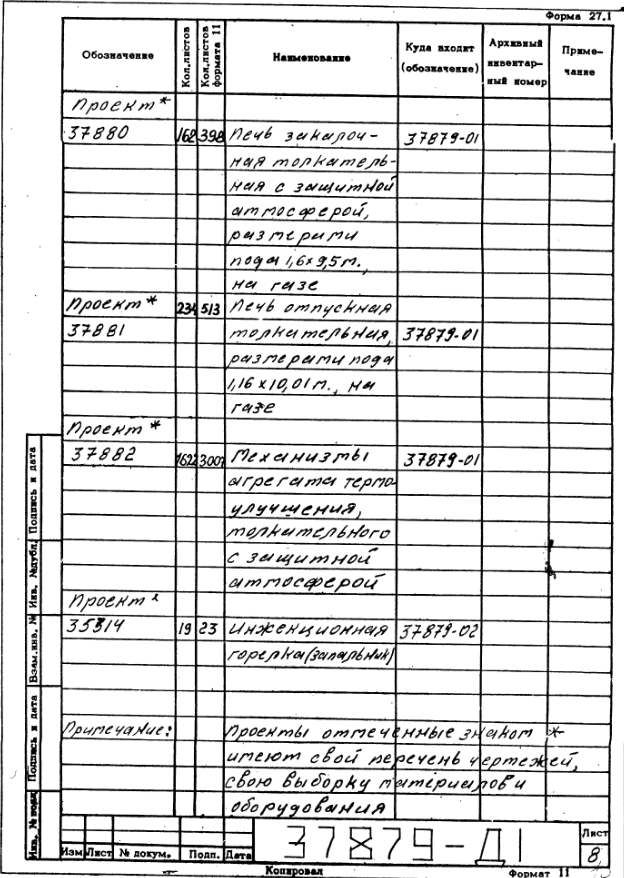 Форма 27.1
Обозначение Кол.листов Кол.листов формата 11 Наименование Куда входит (обозначение) Архивный инвентарный номер Примечание
Проект *
37880 162 398 Печь закалоч- 37879-01
ная толкатель-
ная с защитной
атмосферой,
размерами
пода 1,6х9,5м.,
на газе
Проект * 234 513 Печь отпускная
37881 толкательная, 37879-01
размерами пода
1,16 х10,01м., на
газе
Проект *
37882 1622 3007 Механизмы 37879-01
агрегата термо-
улучшения,
толкательного
с защитной
атмосферой
Проект *
35314 19 23 Инжекционная 37879-02
горелка(запальник)
Примечание: Проекты отмеченные знаком *
имеют свой перечень чертежей,
свою выборку материалов и
оборудования
Инв. № подл. Подпись и дата Взам.инв. № Инв. №дубл. Подпись и дата
37879-Д1
Лист
8
Изм Лист № докум. Подп. Дата
Копировал Формат 11